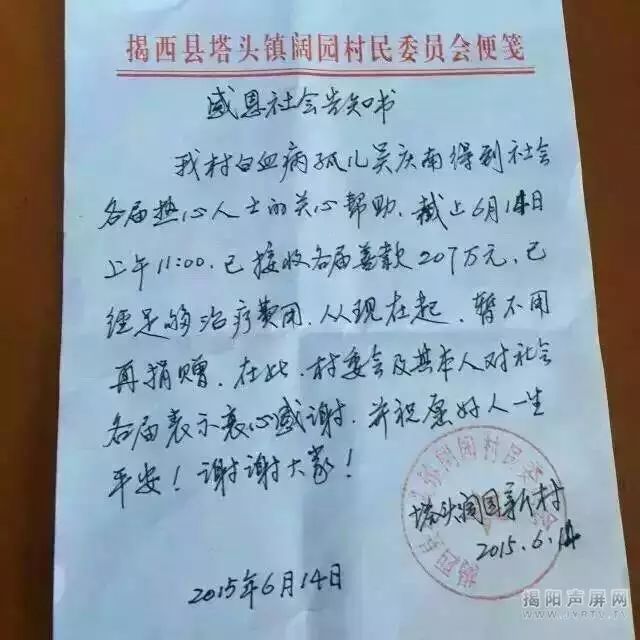 揭西县塔头镇阔园村民委员会便笺
感恩社会告知书
我村白血病孤儿吴庆南得到社会
各届热心人士的关心帮助，截止6月14日
上午11:00，已接收各届善款207万元，已
经足够治疗费用，从现在起，暂不用
再捐赠，在此，村委会及其本人对社会
各届表示衷心感谢，并祝愿好人一生
平安！谢谢大家！
塔头阔园新村
2015.6.14
2015年6月14日
揭阳声屏网
WWW.JYRTV.TV